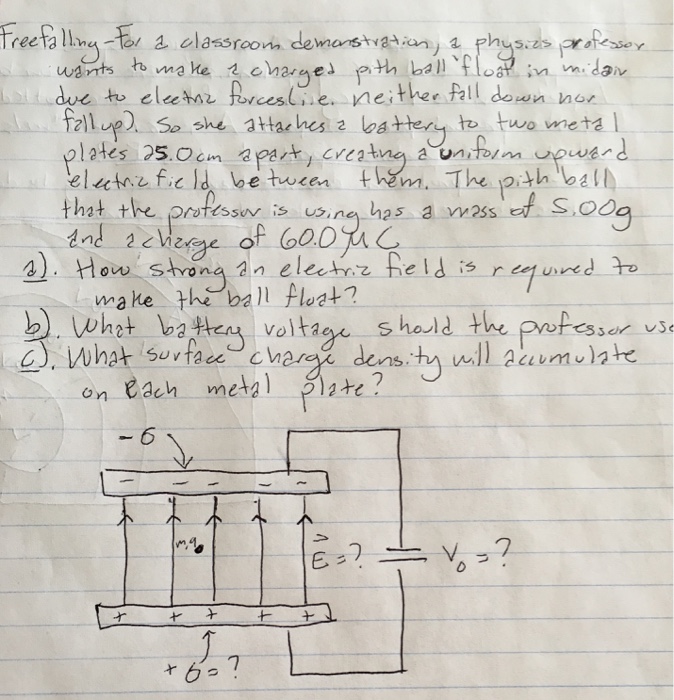 Freefalling - For a classroom demonstration, a physics professor
wants to make a charged pith ball "float" in midair
due to electric forces (i.e. neither fall down nor
fall up). So she attaches a battery to two metal
plates 25.0cm apart, creating a uniform upward
electric field between them. The pith ball
that the professor is using has a mass of 5.00g
and a charge of 60.0 μC
a). How strong an electric field is required to
make the ball float?
b). What battery voltage should the professor use
c). What surface charge density will accumulate
on each metal plate?
-σ
- - - - -
m,q
E⃗ = ?
V₀ = ?
+ + + + +
+σ = ?